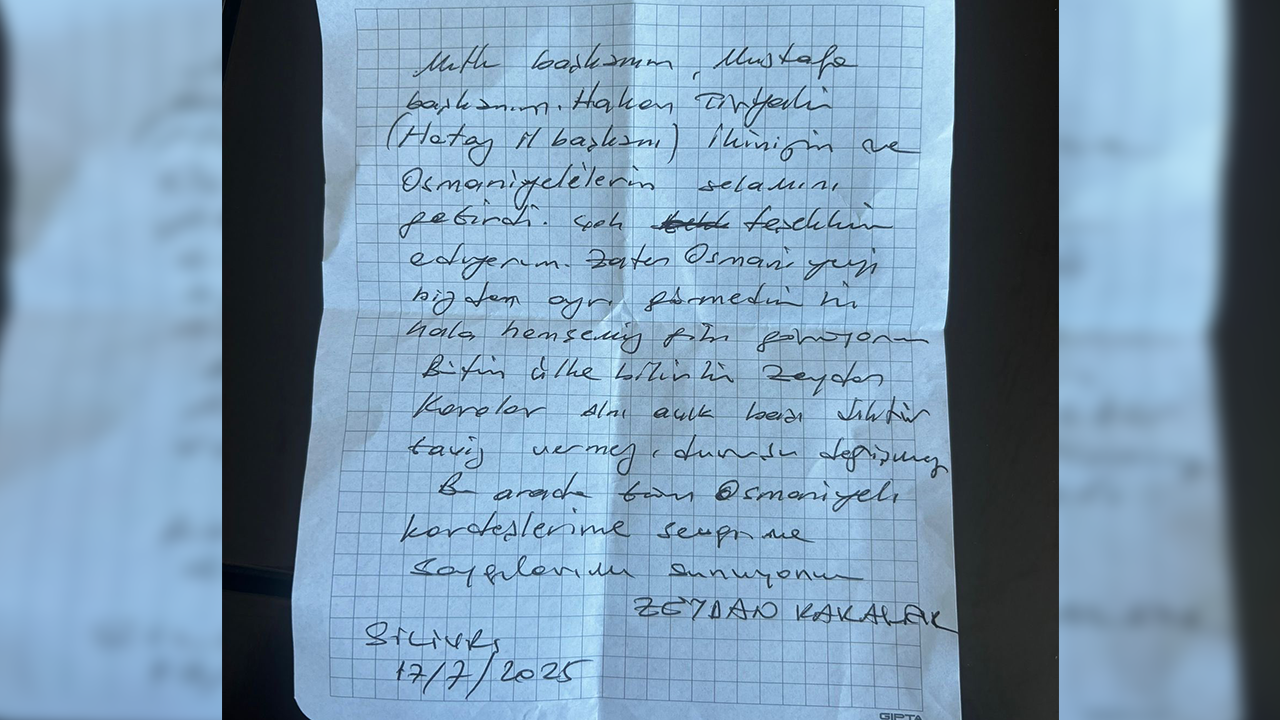 Mutlu başkanım, Mustafa
başkanım. Hakan Tiryaki
(Hatay İl başkanı) ikinizin ve
Osmaniyelilerin selamını
getirdi. çok teşekkür
ediyorum. Zaten Osmaniyeyi
bizden ayrı görmedim ki
hala hemşeriniz gibi görüyorum
Bütün ülke bilirki Zeydan
Karalar alnı açık başı diktir
taviz vermez, duruşu değişmez
Bu arada tüm Osmaniyeli
kardeşlerime sevgi ve
saygılarımı sunuyorum
ZEYDAN KARALAR
SİLİVRİ
17/7/2025
GIPTA